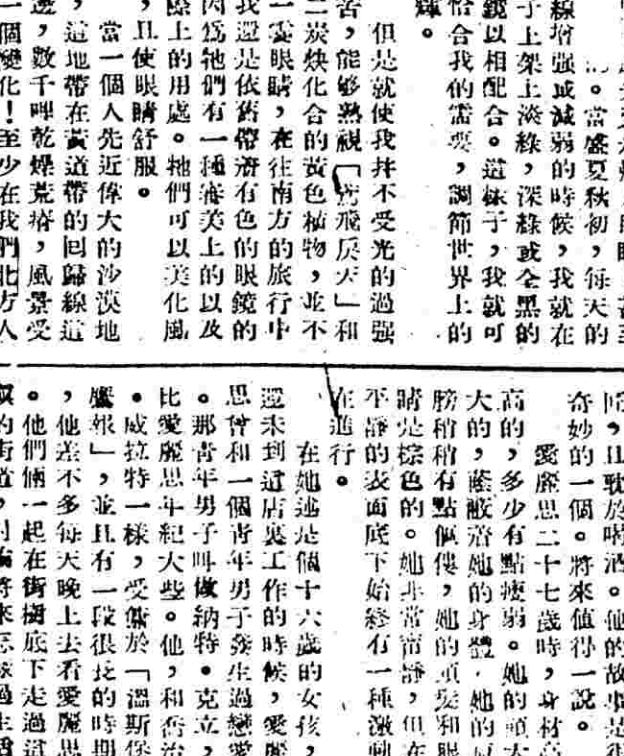 。當盛夏秋初,每天的
線增强或減弱的時候,我就在
子上架上淡綠,深綠或全黑的
鏡以相配合。這樣子,我就可
恰合我的需要,調節世界上的
輝。
但是就使我并不受光的過强
苦,能够熟視「鳶飛戾天」和
二炭煐化合的黃色植物,並不
一雙眼睛,在往南方的旅行中
我還是依舊帶着有色的眼鏡的
因爲牠們有一種審美上的以及
際上的用處。牠們可以美化風
,且使眼睛舒服。
當一個人先近偉大的沙漠地
,這地帶在黃道帶的回歸線這
邊,數千哩乾燥荒瘠,風景受
一個變化!至少在我們北方人
,且歌於喝酒。他的故事是很
奇妙的一個。將來值得一說。
愛麗思二十七歲時,身材
高的,多少有點瘦弱。她的頭大
大的,蔭蔽着她的身體.她的肩
膀稍稍有點傴僂,她的頭髮和眼
睛是棕色的。她非常甯靜,但在
平靜的表面底下始終有一種激動
在進行。
在她還是個十六歲的女孩,
還未到這店裏工作的時候,愛麗
思曾和一個青年男子發生過戀愛
。那青年男子叫做納特.克立,
比愛麗思年紀大些。他,和喬治
.威拉特一樣,受傭於「溫斯堡
鷹報」,並且有一段很長的時期
,他差不多每天晚上去看愛麗思
。他們倆一起在街樹底下走過這
的街道,討論將來怎樣過生活